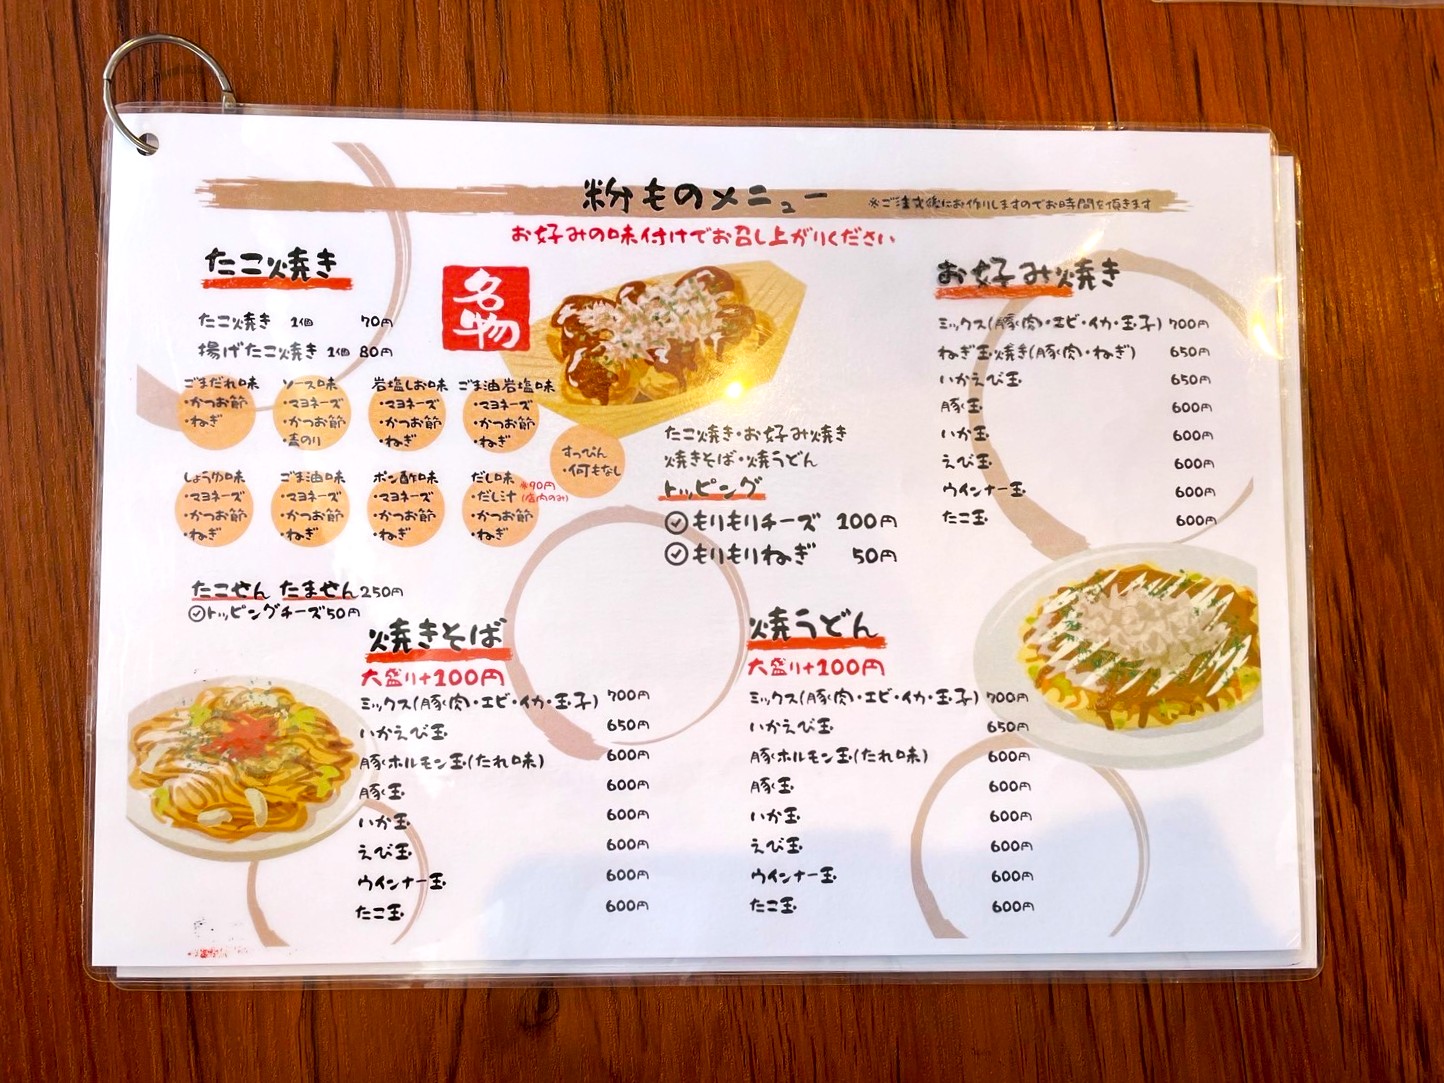 粉ものメニュー
※ご注文後にお作りしますのでお時間を頂きます
お好みの味付けでお召し上がりください
たこ焼き
名物
たこ焼き 1個 70円
揚げたこ焼き 1個 80円
ごまだれ味
・かつお節
・ねぎ
ソース味
・マヨネーズ
・かつお節
・青のり
岩塩しお味
・マヨネーズ
・かつお節
・ねぎ
ごま油岩塩味
・マヨネーズ
・かつお節
・ねぎ
すっぴん
・何もなし
しょうゆ味
・マヨネーズ
・かつお節
・ねぎ
ごま油味
・マヨネーズ
・かつお節
・ねぎ
ポン酢味
・マヨネーズ
・かつお節
・ねぎ
だし味
・だし汁
・かつお節
・ねぎ
※90円
(店内のみ)
たこせん たません250円
トッピングチーズ50円
たこ焼き・お好み焼き
焼きそば・焼うどん
トッピング
もりもりチーズ 100円
もりもりねぎ 50円
お好み焼き
ミックス(豚肉)・エビ・イカ・玉子) 700円
ねぎ玉焼き(豚肉・ねぎ) 650円
いかえび玉 650円
豚玉 600円
いか玉 600円
えび玉 600円
ウインナー玉 600円
たこ玉 600円
焼きそば
大盛り+100円
ミックス(豚肉)・エビ・イカ・玉子) 700円
いかえび玉 650円
豚ホルモン玉(たれ味) 600円
豚玉 600円
いか玉 600円
えび玉 600円
ウインナー玉 600円
たこ玉 600円
焼うどん
大盛り+100円
ミックス(豚肉)・エビ・イカ・玉子) 700円
いかえび玉 650円
豚ホルモン玉(たれ味) 600円
豚玉 600円
いか玉 600円
えび玉 600円
ウインナー玉 600円
たこ玉 600円